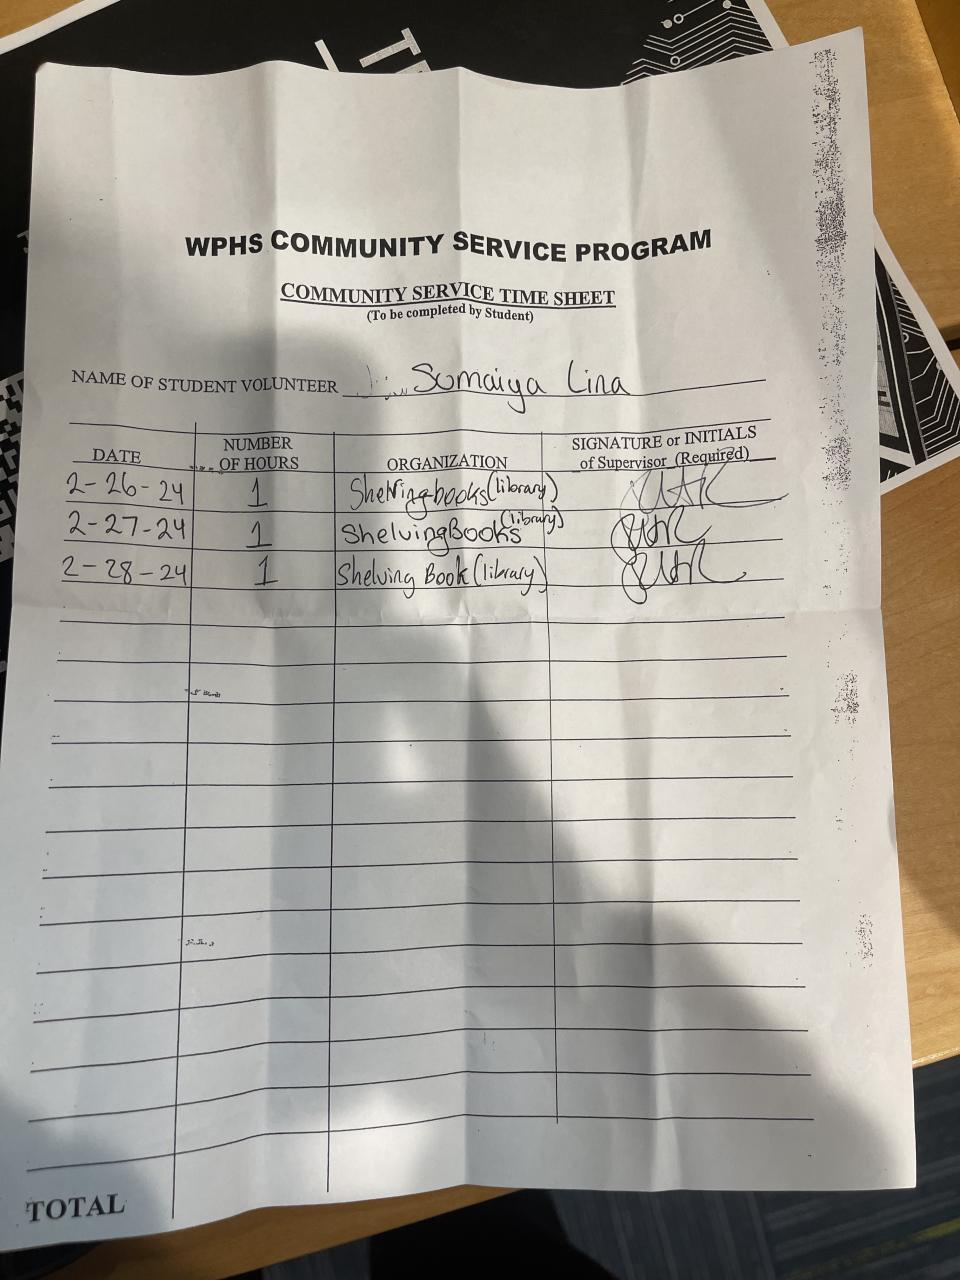 WPHS COMMUNITY SERVICE PROGRAM
COMMUNITY SERVICE TIME SHEET
(To be completed by Student)
NAME OF STUDENT VOLUNTEER Sumaiya Lina
DATE NUMBER OF HOURS ORGANIZATION SIGNATURE or INITIALS of Supervisor (Required)
2-26-24 1 Shelving books (library)
2-27-24 1 Shelving Books (library)
2-28-24 1 Shelving Book (library)
TOTAL